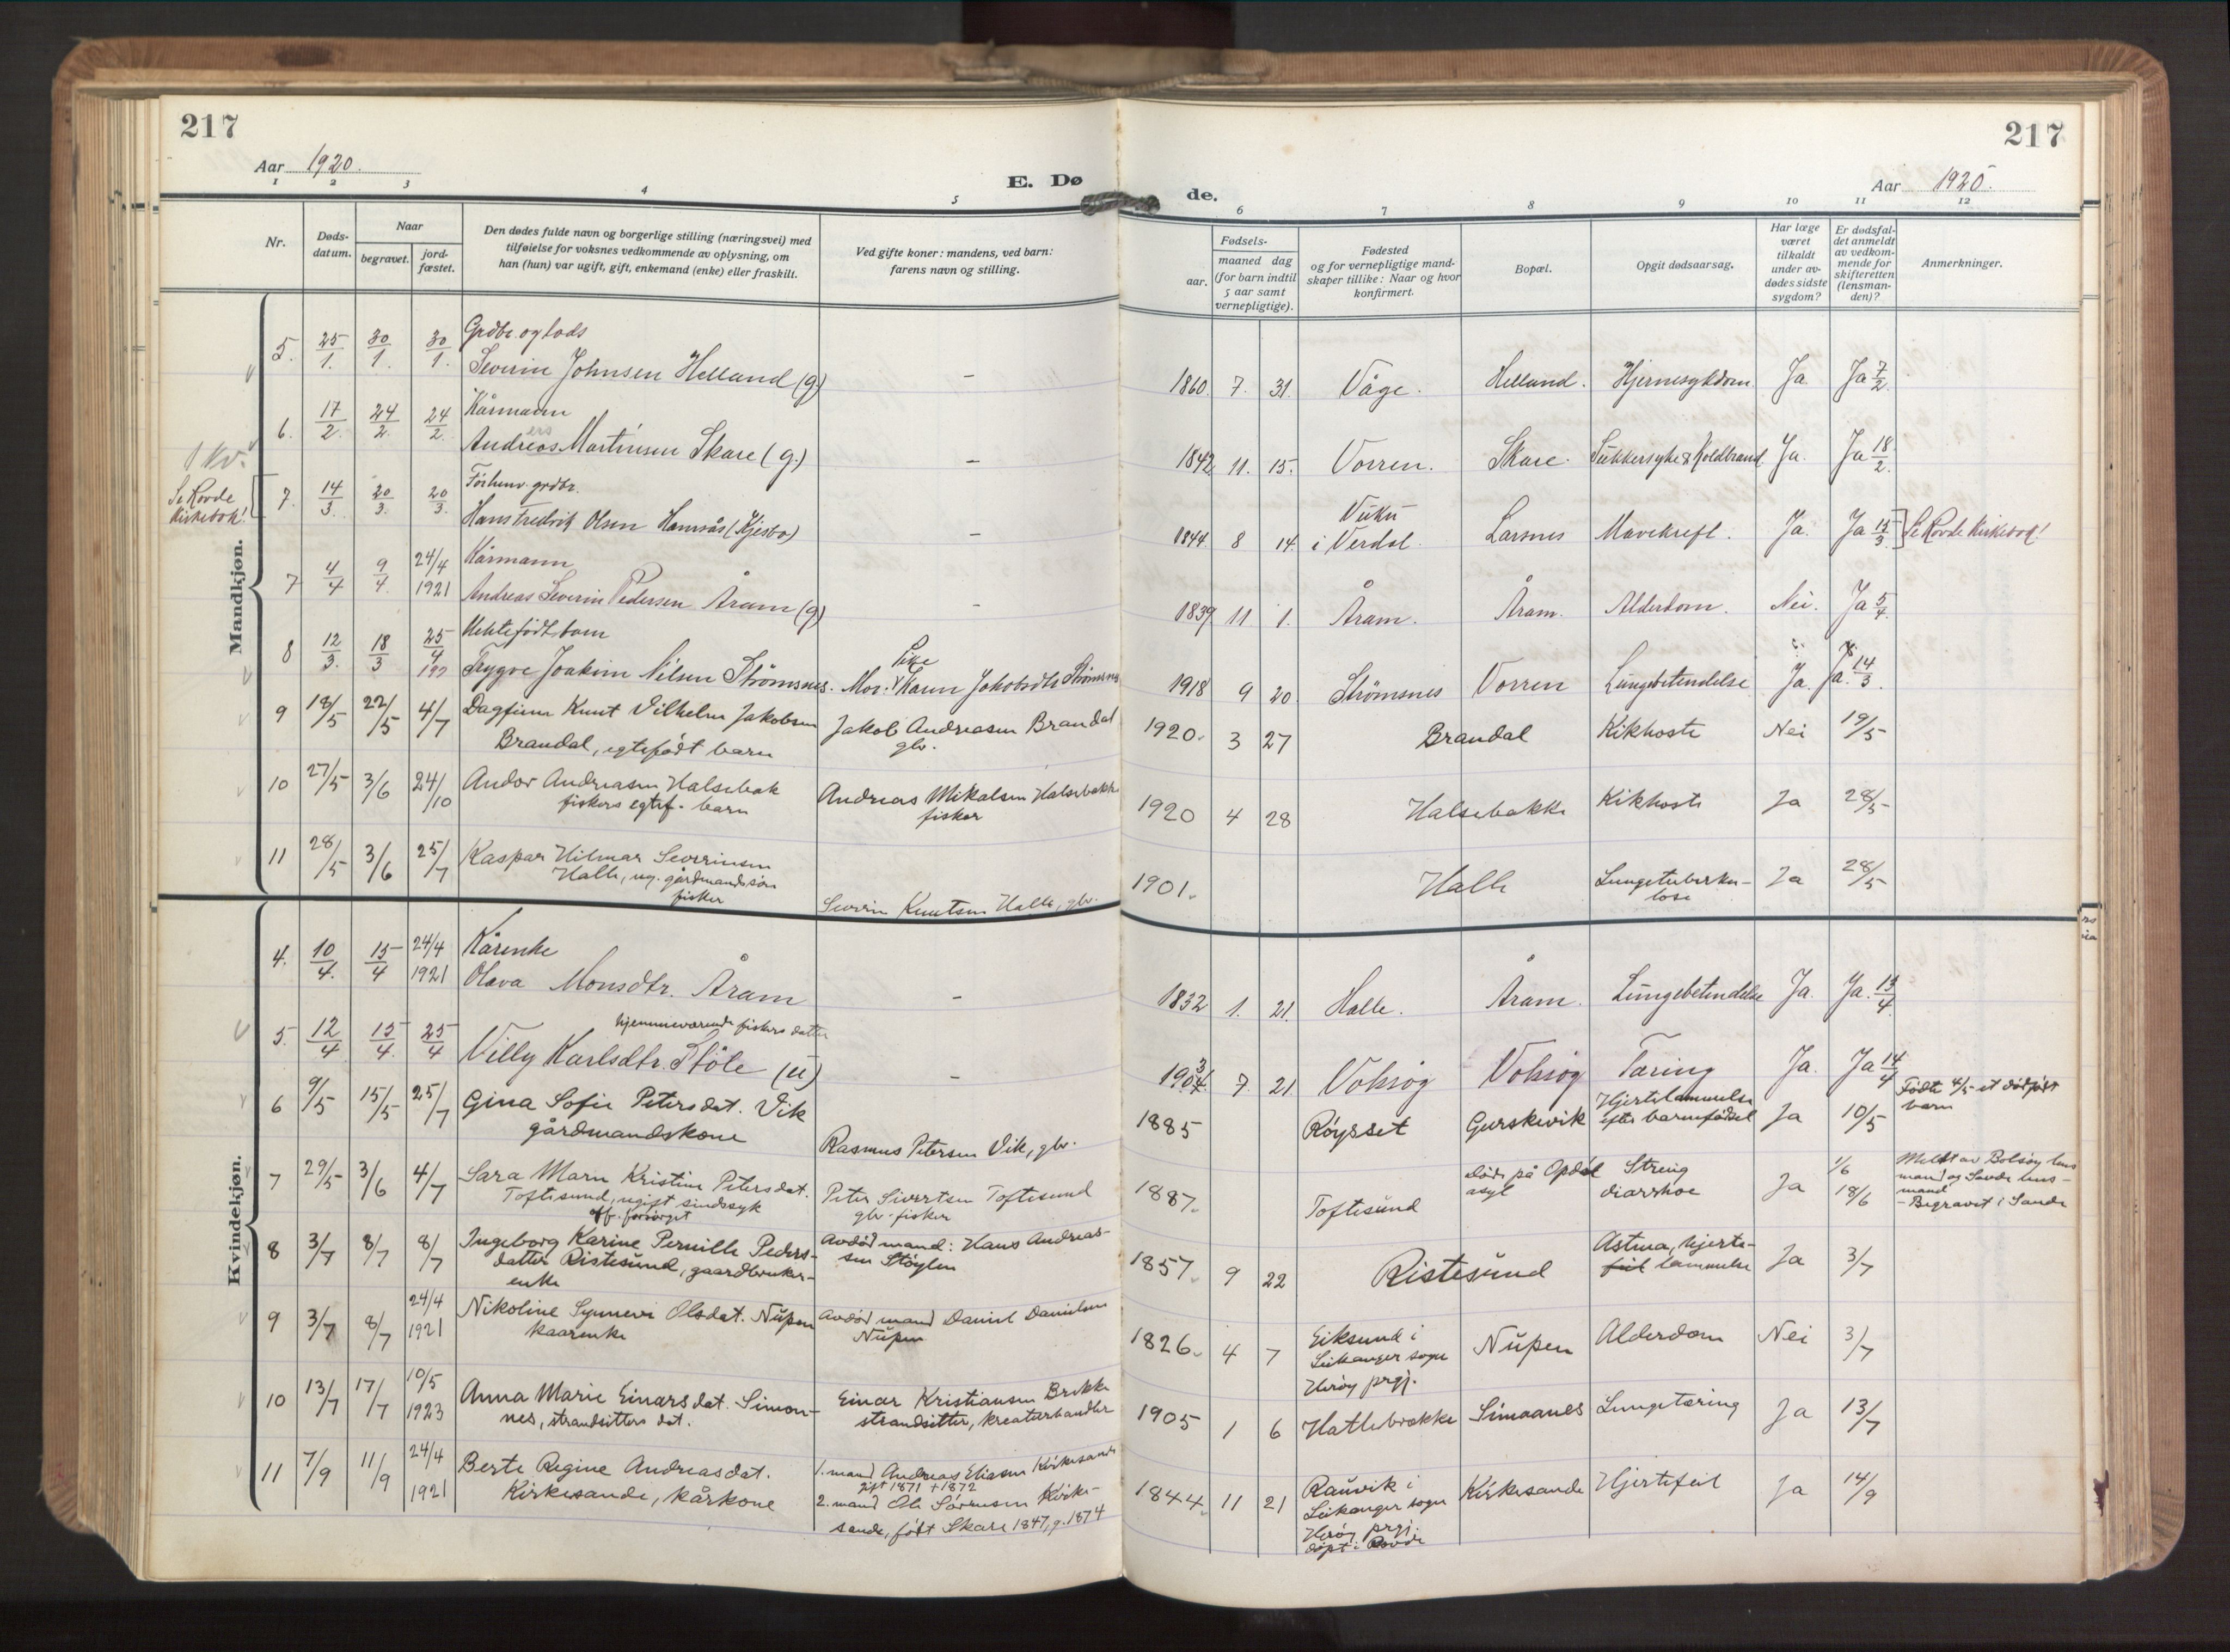 217
Aar 1920.
E. Dø
1 2 3 4 5
Nr.
Døds-
datum.
Naar
begravet.
jord-
fæstet.
Den dødes fulde navn og borgerlige stilling (næringsvei) med
tilføielse for voksnes vedkommende av oplysning, om
han (hun) var ugift, gift, enkemand (enke) eller fraskilt.
Ved gifte koner: mandens, ved barn:
farens navn og stilling.
Mandkjøn.
5. 25/1. 30/1. 30/1. Grdbr. og lods
Severin Johnsen Helland (g.) –
6. 17/2. 24/2. 24/2. Kårmann
Andreas Martinsen Skare (g.) –
1 kv.
Se Rovde
Kirkebok!
7. 14/3. 20/3. 20/3. Förhenv. grdbr.
Hans Fredrik Olsen Hamsås (Kjesbo) –
7 4/4 9/4. 24/4 1921 Kårmann
Andreas Severin Pedersen Åram (g) –
8 12/3. 18/3 25/4 192 Uektefödt barn
Trygve Joakim Nilsen Strömsnes. Mor: Pike Karen Jakobsdtr Strömsnes
9 18/5 22/5 4/7 Dagfinn Knut Vilhelm Jakobsen
Brandal, egtefødt barn
Jakob Andreasen Brandal
gbr.
10 27/5 3/6 24/10 Andor Andreasen Halsebak
fiskers egtef. barn
Andreas Mikalsen Halsebakke
fisker
11 28/5 3/6 25/7 Kaspar Hilmar Severinsen
Halle, ug. gårdmandssøn
fisker
Severin Knutsen Halle, gbr.
Kvindekjøn.
4. 10/4. 15/4 24/4 1921 Kårenke
Olava Monsdtr. Åram –
5. 12/4 15/4. 25/4 hjemmeværende fiskers datter
Villy Karlsdtr. Støle (u) –
6 9/5 15/5 25/7 Gina Sofie Petersdat. Vik
gårdmandskone
Rasmus Petersen Vik, gbr.
7 29/5 3/6 4/7 Sara Marn Kristine Petersdat.
Toftesund, ugift sindssyk
off. forsörget
Peter Sivertsen Toftesund
gbr. fisker
8 3/7 8/7 8/7 Ingeborg Karine Pernille Peders-
datter Ristesund, gaardbruker-
enke
Avdød mand: Hans Andreas-
sen Støylen
9 3/7 8/7 24/4 1921 Nikoline Synnevi Olsdat. Nupen
kaarenke
Avdød mand Daniel Danielsen
Nupen
10 13/7 17/7 10/5 1923 Anna Marie Einarsdat. Simon-
nes, strandsitters dat.
Einar Kristiansen Brekke
strandsitter, kreaturhandler
11 7/9 11/9 24/4 1921 Berte Regine Andreasdat.
Kirkesande, kårkone
1. mand Andreas Eliasen Kirkesande
gift 1871 † 1872
2. mand Ole Sørensen Kirke-
sande, født Skare 1847, g. 1874
217
Aar 1920.
de.
6 7 8 9 10 11 12
Fødsels-
aar.
maaned dag
(for barn indtil
5 aar samt
vernepligtige).
Fødested
og for vernepligtige mand-
skaper tillike: Naar og hvor
konfirmert.
Bopæl.
Opgit dødsaarsag.
Har læge
været
tilkaldt
under av-
dødes sidste
sygdom?
Er dødsfal-
det anmeldt
av vedkom-
mende for
skifteretten
(lensman-
den)?
Anmerkninger.
1860. 7. 31. Våge. Helland. Hjernesykdom Ja. Ja 7/2.
1842 11. 15. Vorren. Skare. Sukkersyke & Koldbrand Ja. Ja 18/2.
1844. 8 14. Vuku
i Verdal. Larsnes Mavekreft. Ja. Ja 15/3. Se Rovde Kirkebok!
1839 11 1. Åram. Åram. Alderdom. Nei. Ja 5/4.
1918 9 20. Strömsnes Vorren Lungebetendelse Ja. Ja. 14/3.
1920. 3 27 Brandal Kikhoste Nei 19/5
1920 4 28 Halsebakke Kikhoste Ja 28/5
1901. Halle Lungetuberku-
lose Ja 28/5
1832 1. 21. Halle. Åram. Lungebetendelse Ja. Ja. 13/4.
1903. 7. 21. Voksøy Voksøy Tæring Ja. Ja 14/4
1885 Røysset Gurskevik Hjertelammelse
efter barnefødsel Ja 10/5 Fødte 4/5 et dødfødt
barn
1887. Toftesund Døde på Opdøl
asyl Streng
diarrhoe Ja 1/6
18/6 Meldt av Bolsøy lens
mand og Sande lens-
mand
– Begravet i Sande
1857. 9 22 Ristesund Astma, hjerte-
feil lammelse Ja 3/7
1826. 4 7 Eiksund i
Leikanger sogn
Herøy prgj. Nupen Alderdom Nei 3/7
1905 1 6 Hatlebrække Simaanes Lungetæring Ja 13/7
1844. 11 21 Rauvik i
Leikanger sogn
Herøy prgj.
døpt i Rovde Kirkesande Hjertefeil Ja 14/9